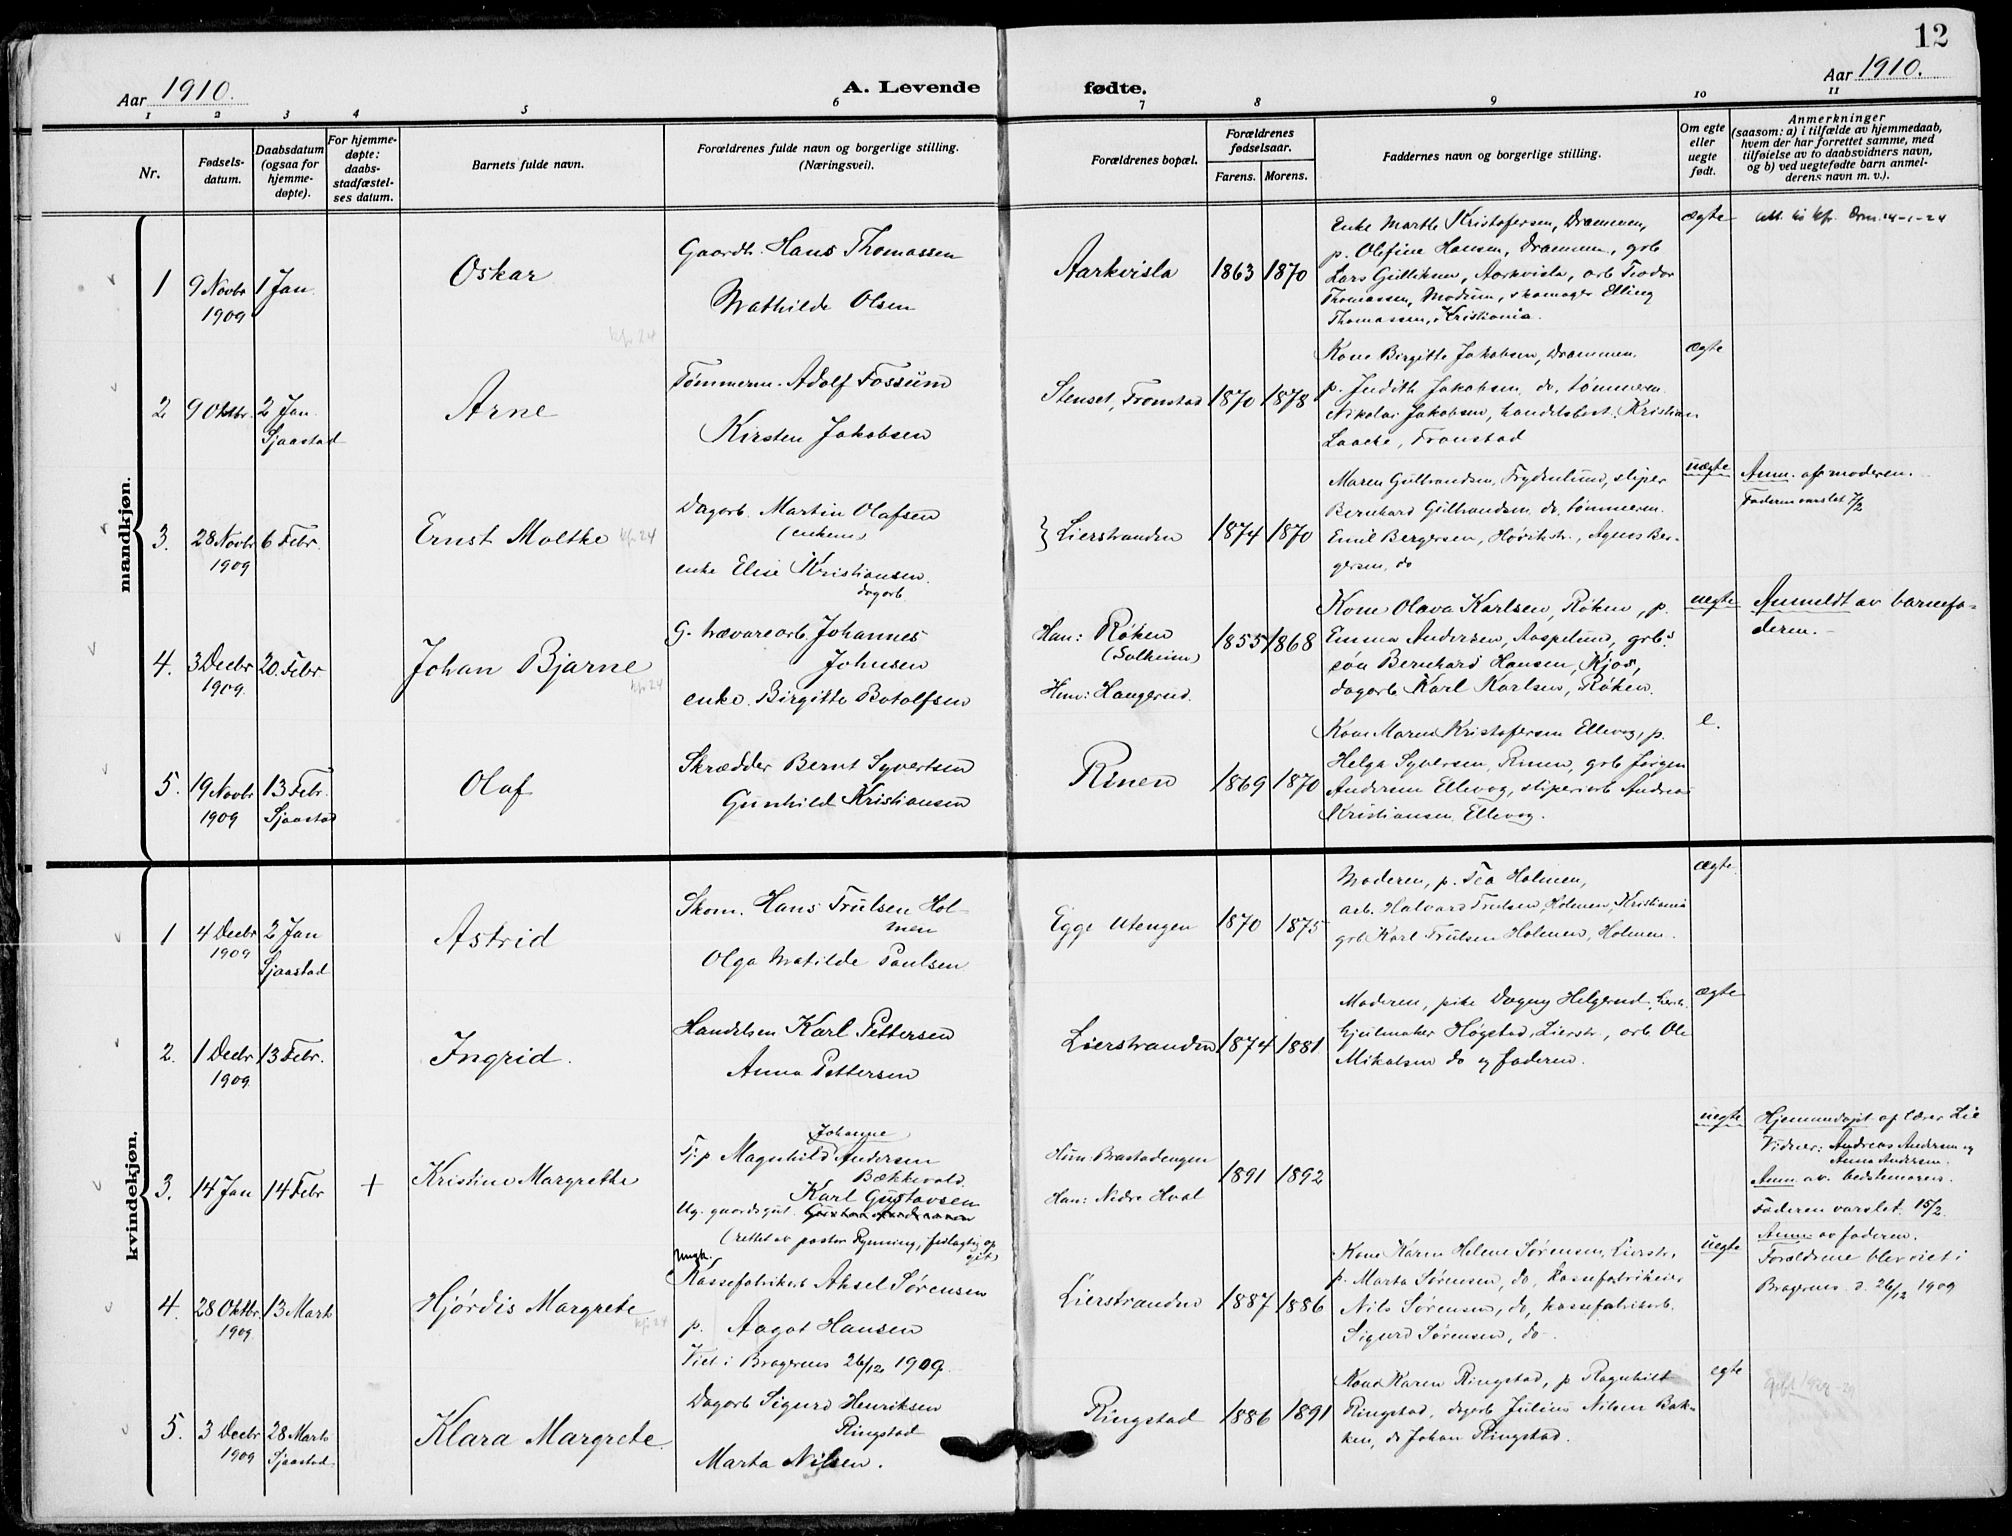 12
Aar 1910.
A. Levende fødte.
Aar 1910.
1 2 3 4 5 6 7 8 9 10 11
Nr.
Fødsels-
datum.
Daabsdatum
(ogsaa for
hjemme-
døpte).
For hjemme-
døpte:
daabs-
stadfæstel-
ses datum.
Barnets fulde navn.
Forældrenes fulde navn og borgerlige stilling.
(Næringsvei).
Forældrenes bopæl.
Forældrenes
fødselsaar.
Farens. Morens.
Faddernes navn og borgerlige stilling.
Om egte
eller
uegte
født.
Anmerkninger
(saasom: a) i tilfælde av hjemmedaab,
hvem der har forrettet samme, med
tilføielse av to daabsvidners navn,
og b) ved uegtefødte barn anmel-
derens navn m. v.).
mandkjøn.
1
9 Novbr
1909
1 Jan.
Oskar
kfr 24
Gaardb. Hans Thomassen
Mathilde Olsen
Aarkvisla
1863 1870
Enke Marthe Kristofersen, Drammen,
p. Olefine Hansen, Drammen, grb
Lars Gulliksen, Aarkvisla, arb Teodor
Thomassen, Modum, skomager Elling
Thomassen, Kristiania.
ægte
2
9 Oktbr.
2 Jan.
Sjaastad
Arne
Tømmerm. Adolf Fossum
Kirsten Jakobsen
Stenset, Tronstad
1870 1878
Kone Birgitte Jakobsen, Drammen.
p. Judith Jakobsen do, tømmerm.
Nikolai Jakobsen, handelsbest. Kristian
Laache, Tronstad
ægte
3.
28 Novbr
1909
6 Febr.
Ernst Moltke kfr 24
Dagarb. Martin Olafsen
(enkem)
enke Elise Kristiansen.
dagarb.
} Lierstranden
1874 1870
Maren Gulbrandsen, Frydenlund, sliper
Bernhard Gulbrandsen do, tømmerm.
Emil Bergersen, Høvikstr., Agnes Ber-
gersen, do
uægte
Anm. af moderen.
Faderen varslet 7/2
4.
3 Decbr
1909.
20. Febr
Johan Bjarne
kfr 24
G. trævarearb. Johannes
Johnsen
enke. Birgitte Botolfsen
Han: Røken
(Solheim)
Hun: Haugerud.
1855 1868
Kone Olava Karlsen, Røken, p.
Emma Andersen, Aaspelund, grbs
søn Bernhard Hansen, Kjos,
dagarb Karl Karlsen, Røken.
uegte
Anmeldt av barnefa-
deren.
5.
19 Novbr
1909
13 Febr.
Sjaastad
Olaf
Skrædder Bernt Syvertsen
Gunhild Kristiansen
Rinen
1869 1870
Kone Maren Kristofersen Ellevog, p.
Helga Syversen, Rinen, grb Jørgen
Andersen Ellevog, sliperiarb Andreas
Kristiansen, Ellevog.
e.
kvindekjøn.
1
4 Decbr
1909
2 Jan
Sjaastad
Astrid
Skom. Hans Trulsen Hol-
men
Olga Matilde Paulsen
Egge Utengen
1870 1875
Moderen, p. Tea Holmen,
arb. Halvard Trulsen, Holmen, Kristiania
grb Karl Trulsen Holmen, Holmen.
ægte
2.
1 Decbr
1909.
13 Febr.
Ingrid.
Handelsm Karl Pettersen
Anna Pettersen
Lierstranden
1874 1881
Moderen, pike Dagny Helgerud, Lierstr.
Gjeilmaker Høgstad, Lierstr., arb Ole
Mikalsen do og faderen.
ægte
3.
14 Jan
14 Febr
+
Kristine Margrethe
Johanne
Tj. p Magnhild Andersen
Bækkevold.
Karl Gustavsen
Ug. gaardsgut.
(rettet av pastor Rynning, feilagtig op
git)
Hun Brastadengen
Han: Nedre Hval
1891 1892
uegte
Hjemmedøpt af lærer Lie
Vidner: Andreas Andersen og
Anna Andersen.
Anm. av bedstemoren.
Faderen varslet 15/2.
4.
28 Oktbr.
1909.
13 Marts
Hjørdis Margrete
kfr 24
Ungk.
Kassefabrikarb Aksel Sørensen
p. Aagot Hansen
Viet i Bragernes 26/12 1909.
Lierstranden
1887 1886
Kone Karen Helene Sørensen, Lierstr.,
p. Marta Sørensen, do, kassefabrikeier
Nils Sørensen, do, kassefabrikarb.
Sigurd Sørensen, do.
uegte
Anm. av faderen.
Forældrene blev viet i
Bragernes d. 26/12 1909
5.
3 Decbr
1909
28 Marts
Sjaastad.
Klara Margrete.
Dagarb Sigurd Henriksen
Ringstad
Marta Nilsen.
Ringstad
1886 1891
Kone Karen Ringstad, p Ragnhild
Ringstad, dagarb Julius Nilsen Bak-
ken, do Johan Ringstad.
egte